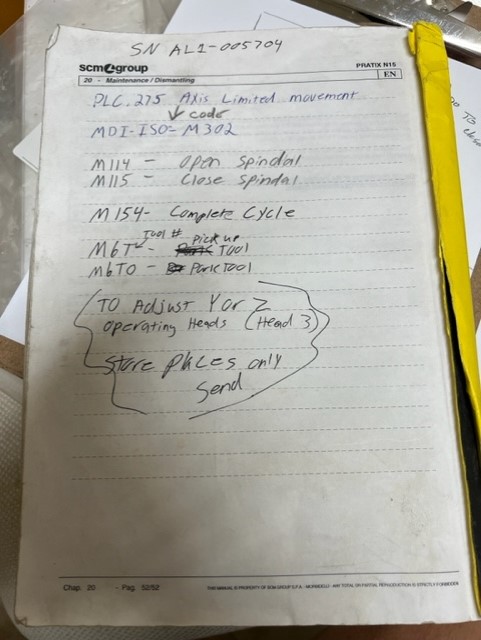 SN AL1-005704
scm group
PRATIX N15
20 - Maintenance / Dismantling
EN
PLC. 275 Axis Limited movement
code
MDI-ISO- M302
M114 - Open Spindal
M115 - Close Spindal
M154- Complete Cycle
Tool # Pick up
M6T - Tool
M6T0 - Park Tool
TO Adjust Y or Z
operating Heads (Head 3)
Store only
Send
Chap. 20 - Pag. 52/52
THIS MANUAL IS PROPERTY OF SCM GROUP S.P.A. - MORBIDELLI - ANY TOTAL OR PARTIAL REPRODUCTION IS STRICTLY FORBIDDEN
TO